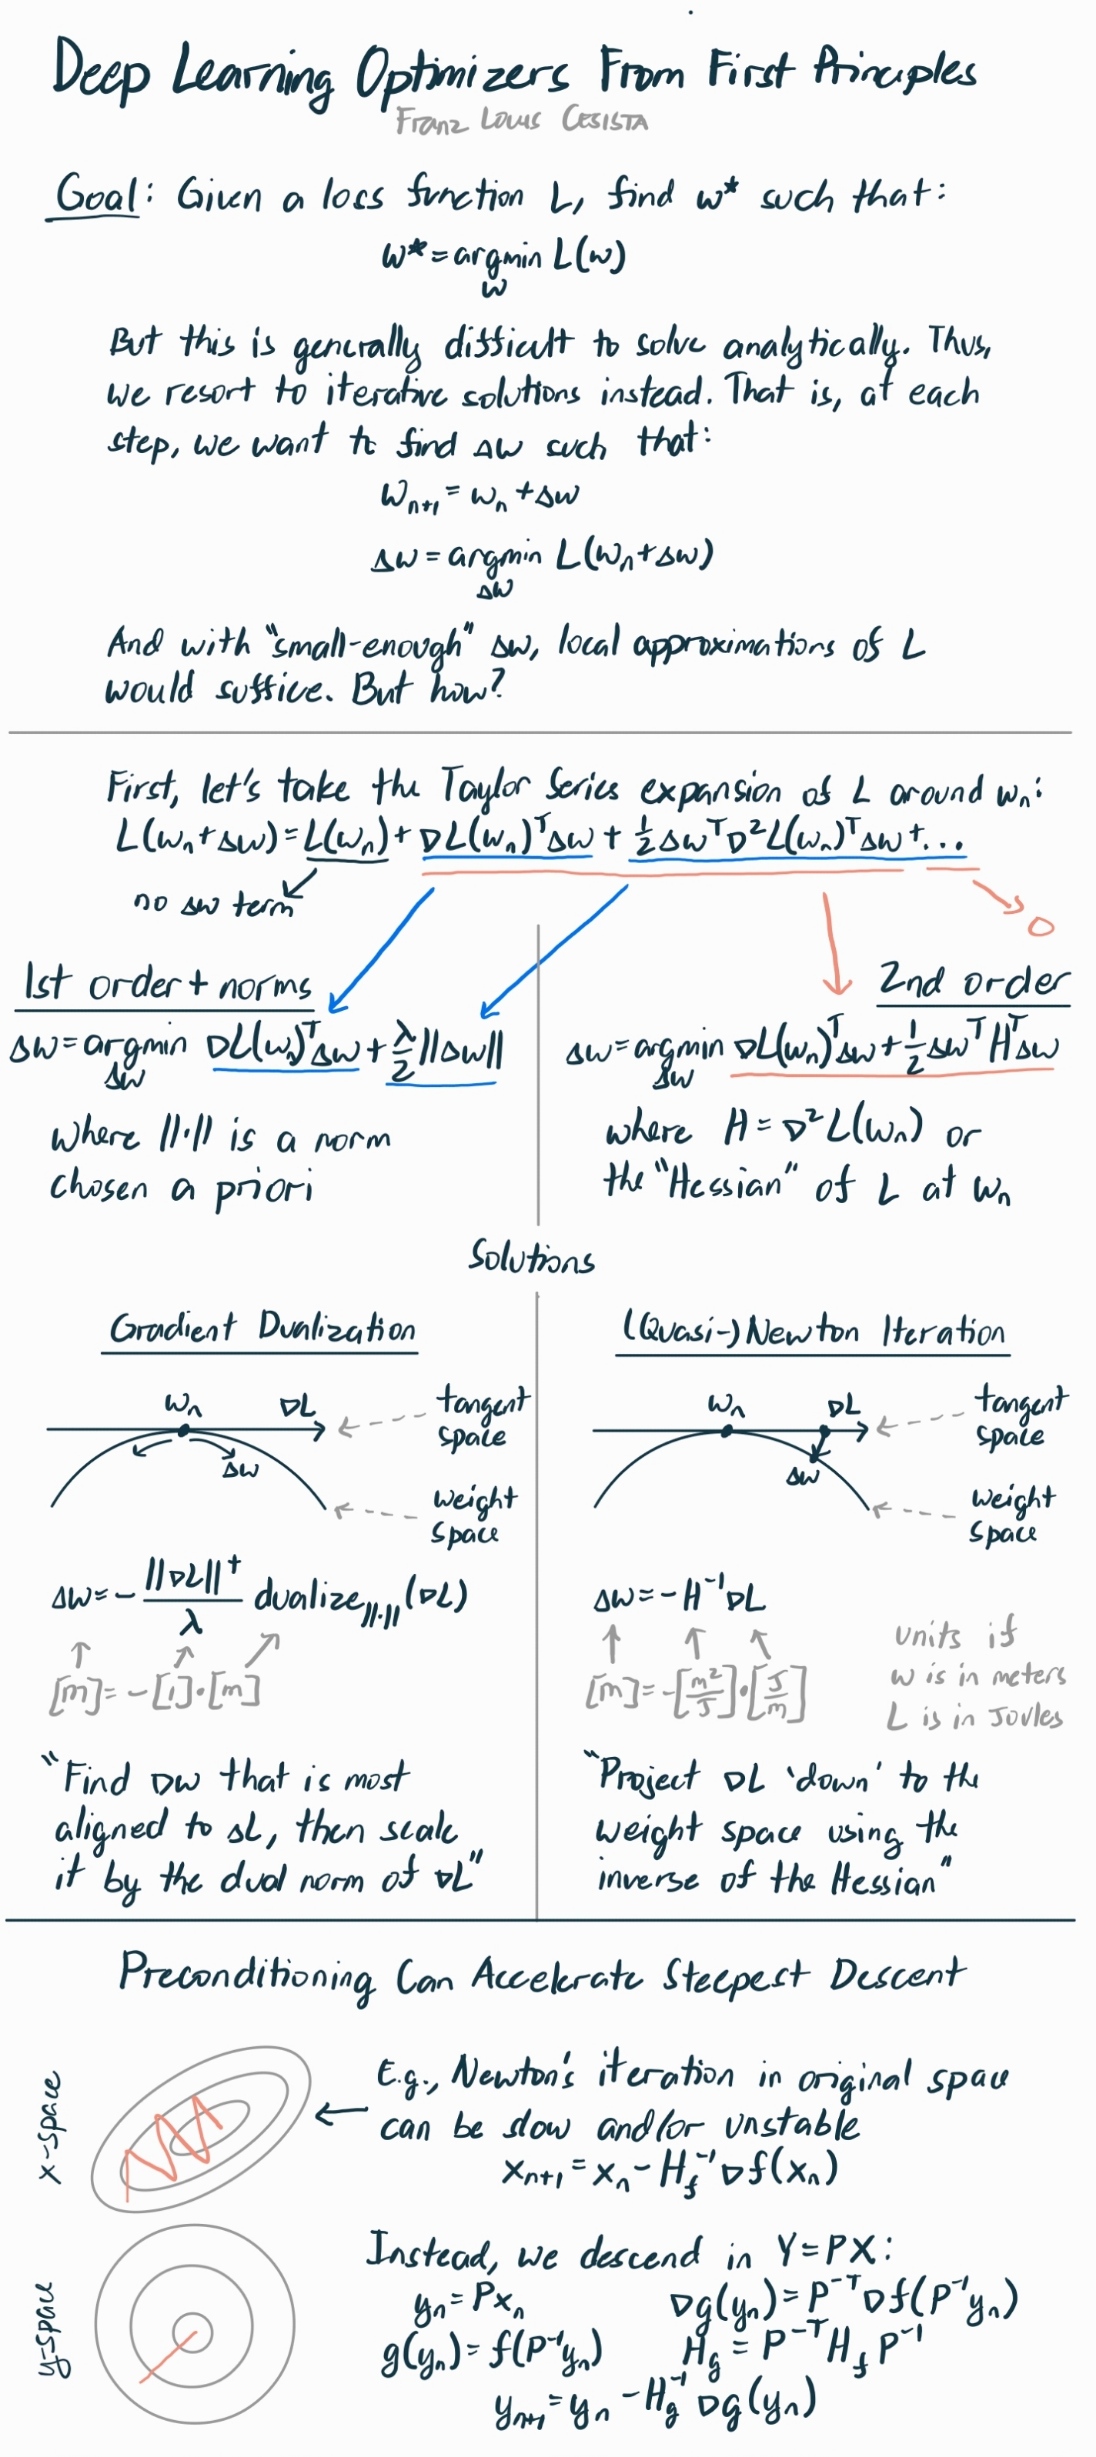 Deep Learning Optimizers From First Principles
Franz Louis Cesista
Goal: Given a loss function L, find w* such that:
w* = argmin L(w)
w
But this is generally difficult to solve analytically. Thus,
we resort to iterative solutions instead. That is, at each
step, we want to find Δw such that:
wₙ₊₁ = wₙ + Δw
Δw = argmin L(wₙ + Δw)
Δw
And with "small-enough" Δw, local approximations of L
would suffice. But how?
First, let's take the Taylor Series expansion of L around wₙ:
L(wₙ + Δw) = L(wₙ) + ∇L(wₙ)ᵀΔw + ½ Δwᵀ∇²L(wₙ)ᵀΔw + ...
no Δw term
0
1st order + norms
Δw = argmin ∇L(wₙ)ᵀΔw + λ/2 ||Δw||
Δw
where ||·|| is a norm
chosen a priori
2nd order
Δw = argmin ∇L(wₙ)ᵀΔw + ½ Δwᵀ Hᵀ Δw
Δw
where H = ∇²L(wₙ) or
the "Hessian" of L at wₙ
Solutions
Gradient Dualization
wₙ ∇L
tangent
space
Δw
weight
space
Δw = - ||∇L||†/λ dualize||·||(∇L)
[m] = - [1]·[m]
"Find ∇w that is most
aligned to ΔL, then scale
it by the dual norm of ∇L"
(Quasi-)Newton Iteration
wₙ ∇L
tangent
space
Δw
weight
space
Δw = -H⁻¹∇L
[m] = -[m²/J]·[J/m]
units if
w is in meters
L is in Joules
"Project ∇L 'down' to the
weight space using the
inverse of the Hessian"
Preconditioning Can Accelerate Steepest Descent
x-space
E.g., Newton's iteration in original space
can be slow and/or unstable
xₙ₊₁ = xₙ - H_f⁻¹ ∇f(xₙ)
y-space
Instead, we descend in Y = PX:
yₙ = Pxₙ ∇g(yₙ) = P⁻ᵀ∇f(P⁻¹yₙ)
g(yₙ) = f(P⁻¹yₙ) H_g = P⁻ᵀ H_f P⁻¹
yₙ₊₁ = yₙ - H_g⁻¹ ∇g(yₙ)